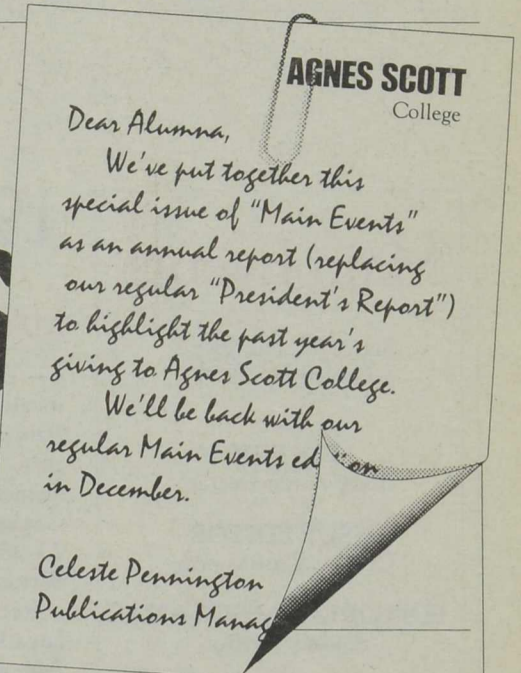 AGNES SCOTT
College
Dear Alumna,
We've put together this
special issue of "Main Events"
as an annual report (replacing
our regular "President's Report")
to highlight the past year's
giving to Agnes Scott College.
We'll be back with our
regular Main Events
in December.
Celeste Pennington
Publications Manag